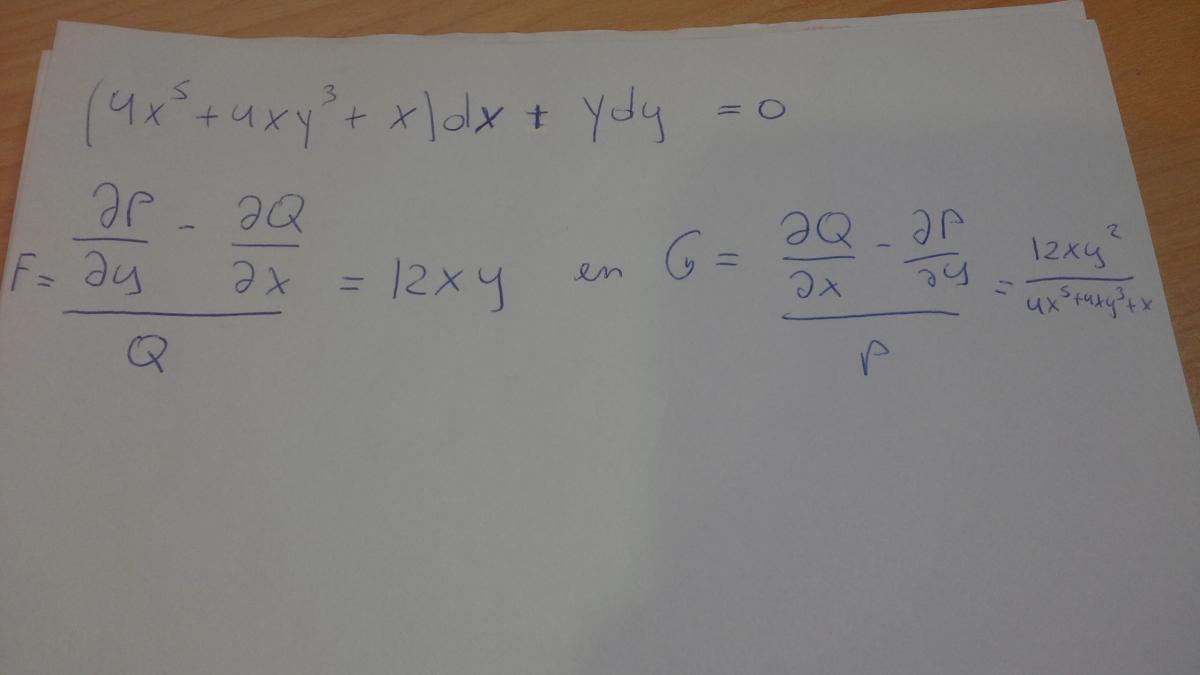 (4x⁵ + 4xy³ + x)dx + ydy = 0
F = (∂P/∂y - ∂Q/∂x)/Q = 12xy en G = (∂Q/∂x - ∂P/∂y)/P = 12xy²/(4x⁵+4xy³+x)